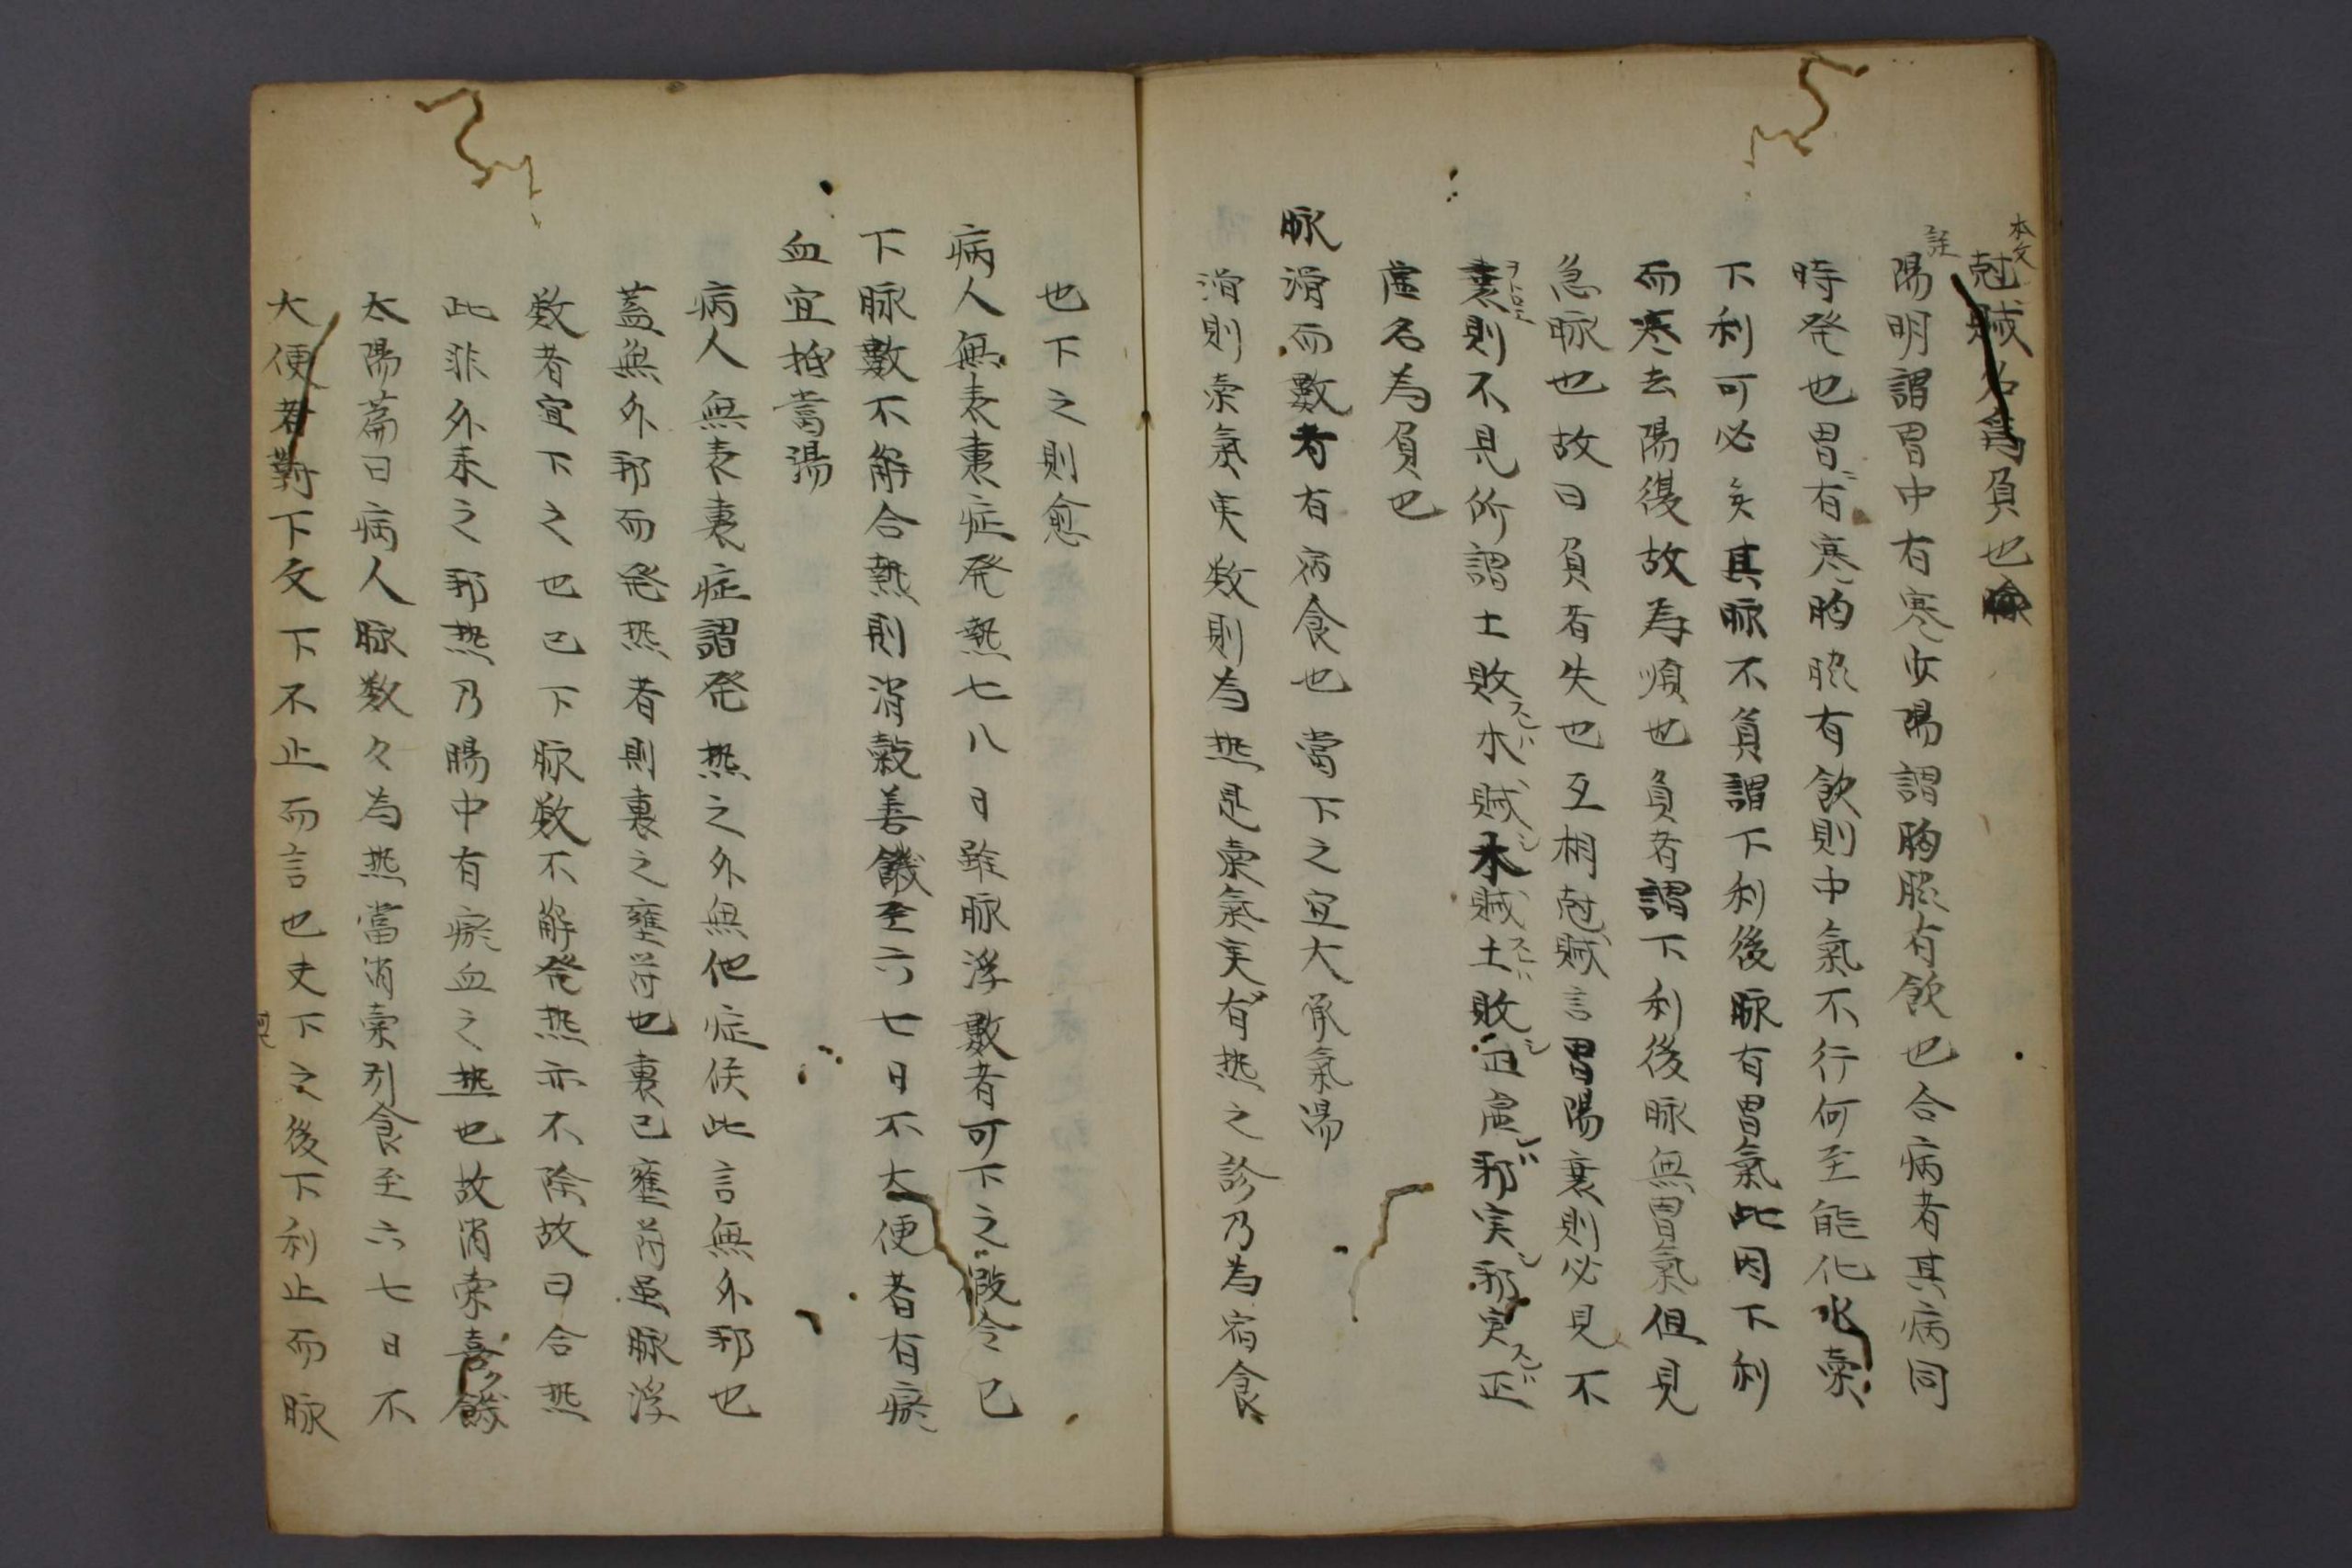 本文
尅賊名為負也
註
陽明謂胃中有寒少陽謂胸脇有飲也合病者其病同
時発也胃有寒胸脇有飲則中氣不行何至能化水索
下利可必矣其脉不負謂下利後脉有胃氣此因下利
而寒去陽復故為順也負者謂下利後脉無胃氣但見
急脉也故曰負者失也互相尅賊言胃陽衰則必見不
衰則不見所謂土敗木賊木賊土敗正虚邪実邪実正
ヲトロエ
虚名為負也
脉滑而數者有宿食也當下之宜大承氣湯
滑則索氣実数則為熱是索氣実有熱之診乃為宿食
也下之則愈
病人無表裏症発熱七八日雖脉浮數者可下之假令已
下脉數不解合熱則消穀善饑至六七日不大便者有瘀
血宜抵當湯
病人無表裏症謂発熱之外無他症候此言無外邪也
蓋無外邪而発熱者則裏之壅也裏已壅虽脉浮
数者宜下之也已下脉数不解発熱亦不除故曰合熱
此非外来之邪熱乃腸中有瘀血之熱也故消索喜饑
太陽篇曰病人脉数々為熱當消索引食至六七日不
大便者對下文下不止而言也丈下之後下利止而脉